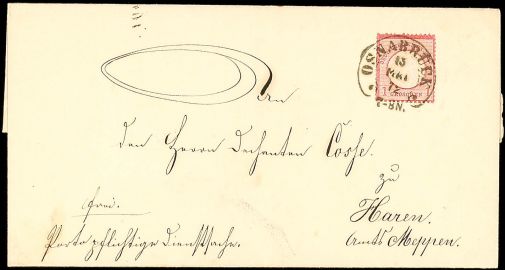 OSNABRUECK
13
MAI
72
7-8N.
1 GROSCHEN
An
den Herrn Dechanten Cosse.
zu
Haren.
Amts Meppen.
frei.
Portopflichtige Dienstsache.